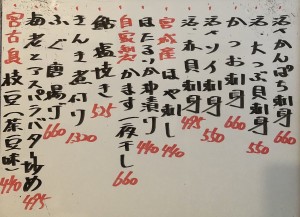 活〆かんぱち刺身 660
活大つぶ貝刺身 550
かつお刺身 660
活〆ソイ刺身 550
活赤貝刺身 495
宮城産 ほや刺し 440
ほたるいか沖漬け 440
自家製 かます一夜干し 660
鮎塩焼き 525
きんき煮付け 1320
ふぐ唐揚げ 660
海老とアスパラバター炒め 495
宮古島 枝豆(茶豆味) 440